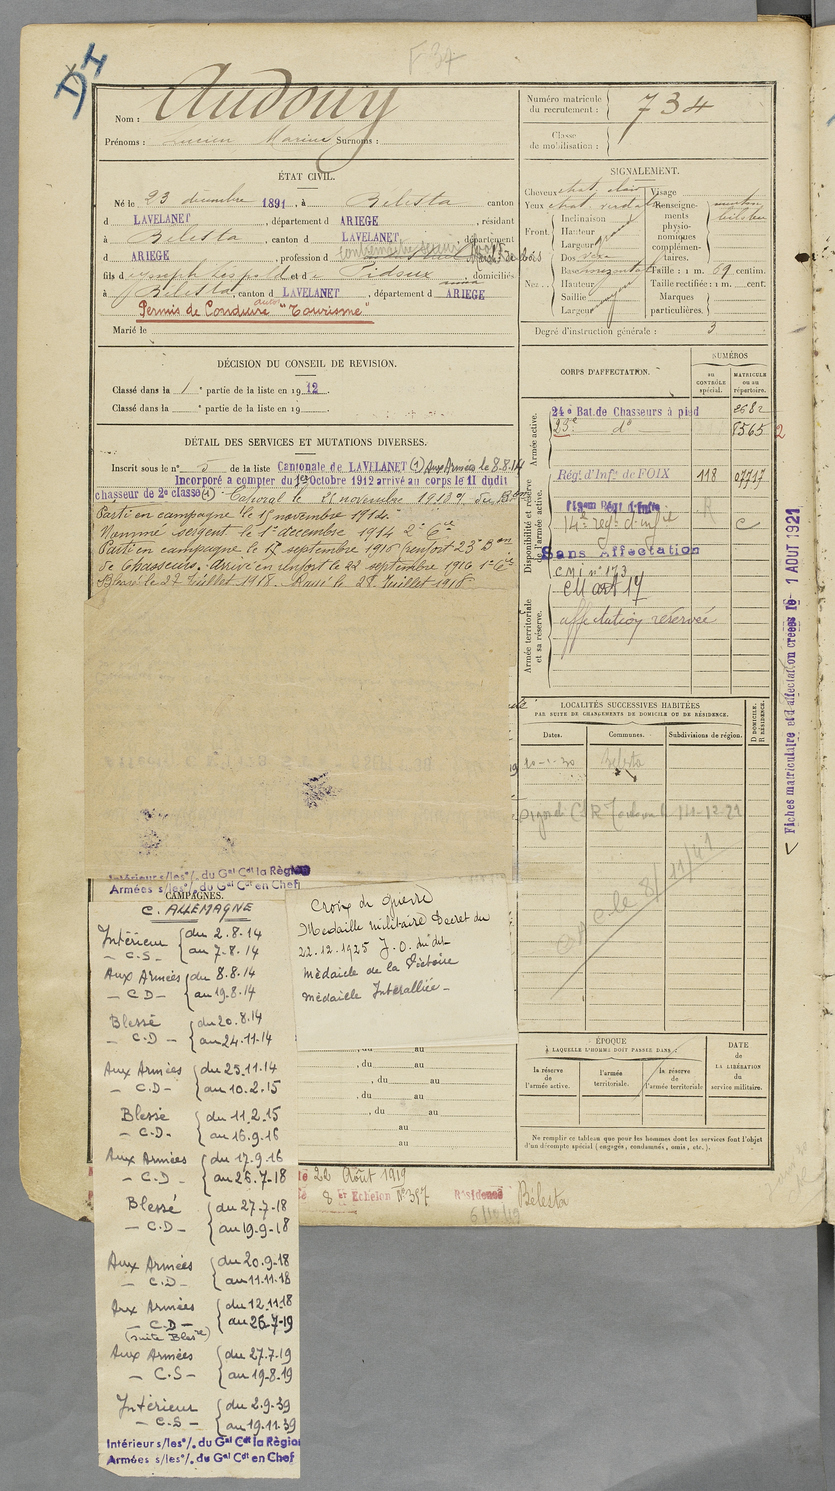 D I
F 34
Nom : Audouy
Prénoms : Lucien Marius Surnoms :
ÉTAT CIVIL.
Né le 23 décembre 1891, à Bélesta canton
d LAVELANET, département d ARIEGE, résidant
à Bélesta, canton d LAVELANET, département
d ARIEGE, profession d
fils d Joseph Léopold et d e Pidoux, domiciliés
à Bélesta, canton d LAVELANET, département d ARIEGE
Permis de Conduire auto "Tourisme"
Marié le
DÉCISION DU CONSEIL DE REVISION.
Classé dans la 1 e partie de la liste en 1912.
Classé dans la e partie de la liste en 19
DÉTAIL DES SERVICES ET MUTATIONS DIVERSES.
Inscrit sous le n° 5 de la liste Cantonale de LAVELANET (1) Aux Armées le 8.8.14
Incorporé à compter du 1er Octobre 1912 arrivé au corps le 11 dudit
chasseur de 2e classe (1) Caporal le 21 novembre 1913
Parti en campagne le 15 novembre 1914.
Nommé sergent le 1er décembre 1914 2e Cie
Parti en campagne le 17 septembre 1916 (renfort 23e Bon
de Chasseurs. Arrivé en renfort le 22 septembre 1916 1e Cie
Blessé le 27 Juillet 1918. Rayé le 28 Juillet 1918
Intérieur s/les o/. du Gal Cdt la Région
Armées s/les o/. du Gal Cdt en Chef
CAMPAGNES.
C. ALLEMAGNE
Intérieur du 2.8.14
- C.S - au 7.8.14
Aux Armées du 8.8.14
- C D - au 19.8.14
Blessé du 20.8.14
- C.D - au 24.11.14
Aux Armées du 25.11.14
- C.D - au 10.2.15
Blessé du 11.2.15
- C.D - au 16.9.16
Aux Armées du 17.9.16
- C.D - au 26.7.18
Blessé du 27.7.18
- C.D - au 19.9.18
Aux Armées du 20.9.18
- C.D - au 11.11.18
Aux Armées du 12.11.18
- C.D - au 26.7.19
(suite Blesre)
Aux Armées du 27.7.19
- C.S - au 19.8.19
Intérieur du 2.9.39
- C.S - au 19.11.39
Intérieur s/les o/. du Gal Cdt la Région
Armées s/les o/. du Gal Cdt en Chef
Croix de guerre
Médaille militaire Décret du
22.12.1925 J.O. du dit
Médaille de la Victoire
Médaille Interalliée -
au
, du au
, du au
, du au
, du au
au
au
le 22 Août 1919
8 er Echelon N° 387 Résidence Bélesta
6/10/19
Numéro matricule
du recrutement : 734
Classe
de mobilisation :
SIGNALEMENT.
Cheveux chat. clair Visage
Yeux chat. verdatre
Front. Inclinaison
Hauteur
Largeur
Nez. Dos
Base horizontale
Hauteur
Saillie
Largeur
Renseigne-
ments
physio-
nomiques
complémen-
taires.
menton
Taille : 1 m. 69 centim.
Taille rectifiée : 1 m. cent.
Marques
particulières.
Degré d'instruction générale : 3
CORPS D'AFFECTATION.
NUMÉROS
AU CONTRÔLE spécial.
MATRICULE ou au répertoire.
Armée active.
24e Bat. de Chasseurs à pied
23e do 8565 2
Disponibilité et réserve de l'armée active.
Régt d'Infie de FOIX 118
14e régt d'inf
Sans Affectation
C M i n° 173
CM art 17
Armée territoriale et sa réserve.
affectation réservée
LOCALITÉS SUCCESSIVES HABITÉES
PAR SUITE DE CHANGEMENTS DE DOMICILE OU DE RÉSIDENCE.
Dates. Communes. Subdivisions de région. D DOMICILE. R RÉSIDENCE.
Bélesta
ÉPOQUE
À LAQUELLE L'HOMME DOIT PASSER DANS :
la réserve de l'armée active.
l'armée territoriale.
la réserve de l'armée territoriale
DATE
de
LA LIBÉRATION
du
service militaire.
Ne remplir ce tableau que pour les hommes dont les services font l'objet
d'un décompte spécial (engagés, condamnés, omis, etc.).
Fiches matriculaire et d'affectation créées le 1 AOUT 1921